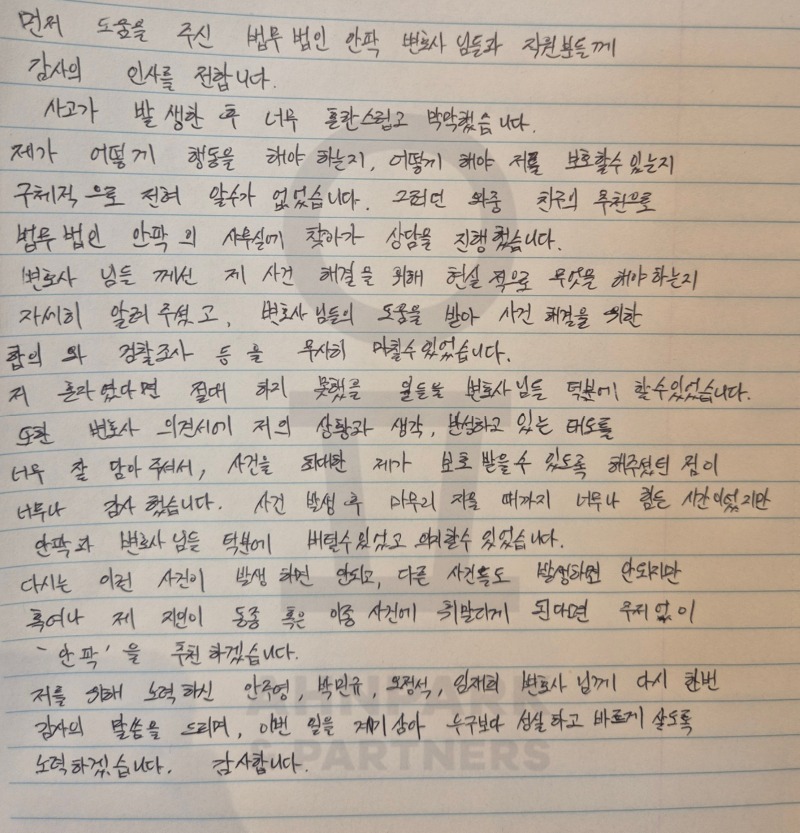 먼저 도움을 주신 법무법인 안팍 변호사님들과 직원분들께
감사의 인사를 전합니다.
사고가 발생한 후 너무 혼란스럽고 막막했습니다.
제가 어떻게 행동을 해야 하는지, 어떻게 해야 저를 보호할수 있는지
구체적으로 전혀 알수가 없었습니다. 그러던 와중 친구의 추천으로
법무법인 안팍의 사무실에 찾아가 상담을 진행했습니다.
변호사님들께선 제 사건 해결을 위해 현실적으로 무엇을 해야하는지
자세히 알려주셨고, 변호사님들의 도움을 받아 사건 해결을 위한
합의와 검찰조사 등을 무사히 마칠수있었습니다.
저 혼자였다면 절대 하지 못했을 일들을 변호사님들 덕분에 할수있었습니다.
또한 변호사 의견서에 저의 상황과 생각, 반성하고 있는 태도를
너무 잘 담아주셔서, 사건을 최대한 제가 보호 받을수 있도록 해주셨던 점이
너무나 감사했습니다. 사건 발생 후 마무리 지을 때까지 너무나 힘든 시간이었지만
안팍과 변호사님들 덕분에 버틸수있었고 의지할수 있었습니다.
다시는 이런 사건이 발생하면 안되고, 다른 사건들도 발생하면 안되지만
혹여나 제 지인이 동종 혹은 이종 사건에 휘말리게 된다면 주저없이
'안팍'을 추천하겠습니다.
저를 위해 노력하신 안주영, 박민규, 오정석, 임재희 변호사님께 다시 한번
감사의 말씀을 드리며, 이번 일을 계기삼아 누구보다 성실하고 바르게 살도록
노력하겠습니다. 감사합니다.
AHNPARK
& PARTNERS